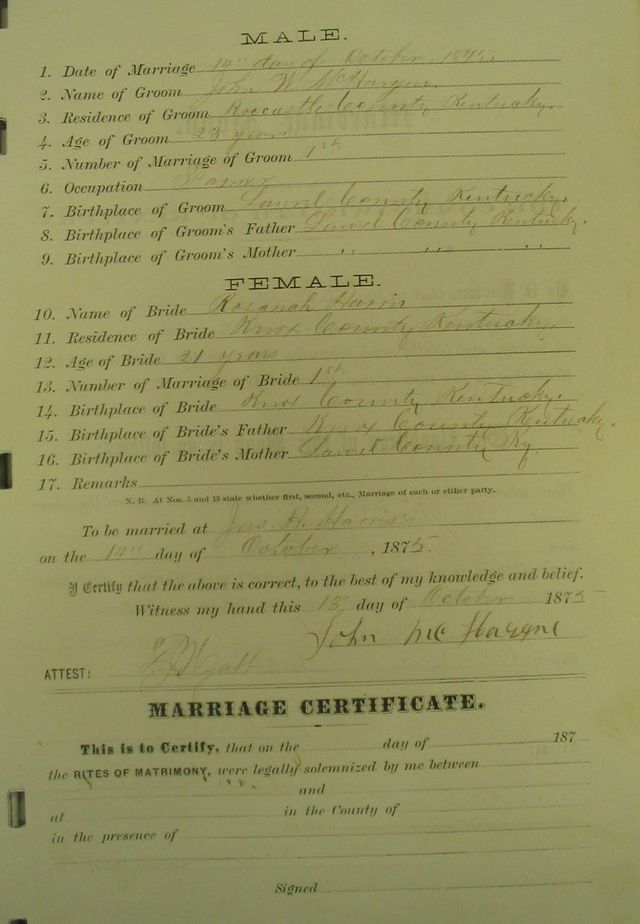 MALE.
1. Date of Marriage 14" day of October, 1875.
2. Name of Groom John W McHargue.
3. Residence of Groom Roccastle County Kentucky.
4. Age of Groom 23 years
5. Number of Marriage of Groom 1st
6. Occupation Farmer
7. Birthplace of Groom Laurel County Kentucky.
8. Birthplace of Groom's Father Laurel County Kentucky.
9. Birthplace of Groom's Mother " " "
FEMALE.
10. Name of Bride Rosanah Harris
11. Residence of Bride Knox County Kentucky.
12. Age of Bride 21 years
13. Number of Marriage of Bride 1st
14. Birthplace of Bride Knox County Kentucky.
15. Birthplace of Bride's Father Knox County Kentucky.
16. Birthplace of Bride's Mother Laurel County Ky
17. Remarks
N. B. At Nos. 5 and 13 state whether first, second, etc., Marriage of each or either party.
To be married at Jas. H. Harris's
on the 14" day of October, 1875.
I Certify that the above is correct, to the best of my knowledge and belief.
Witness my hand this 13" day of October 1875
John McHargue
ATTEST:
MARRIAGE CERTIFICATE.
This is to Certify, that on the day of 187
the RITES OF MATRIMONY, were legally solemnized by me between
and
at in the County of
in the presence of
Signed